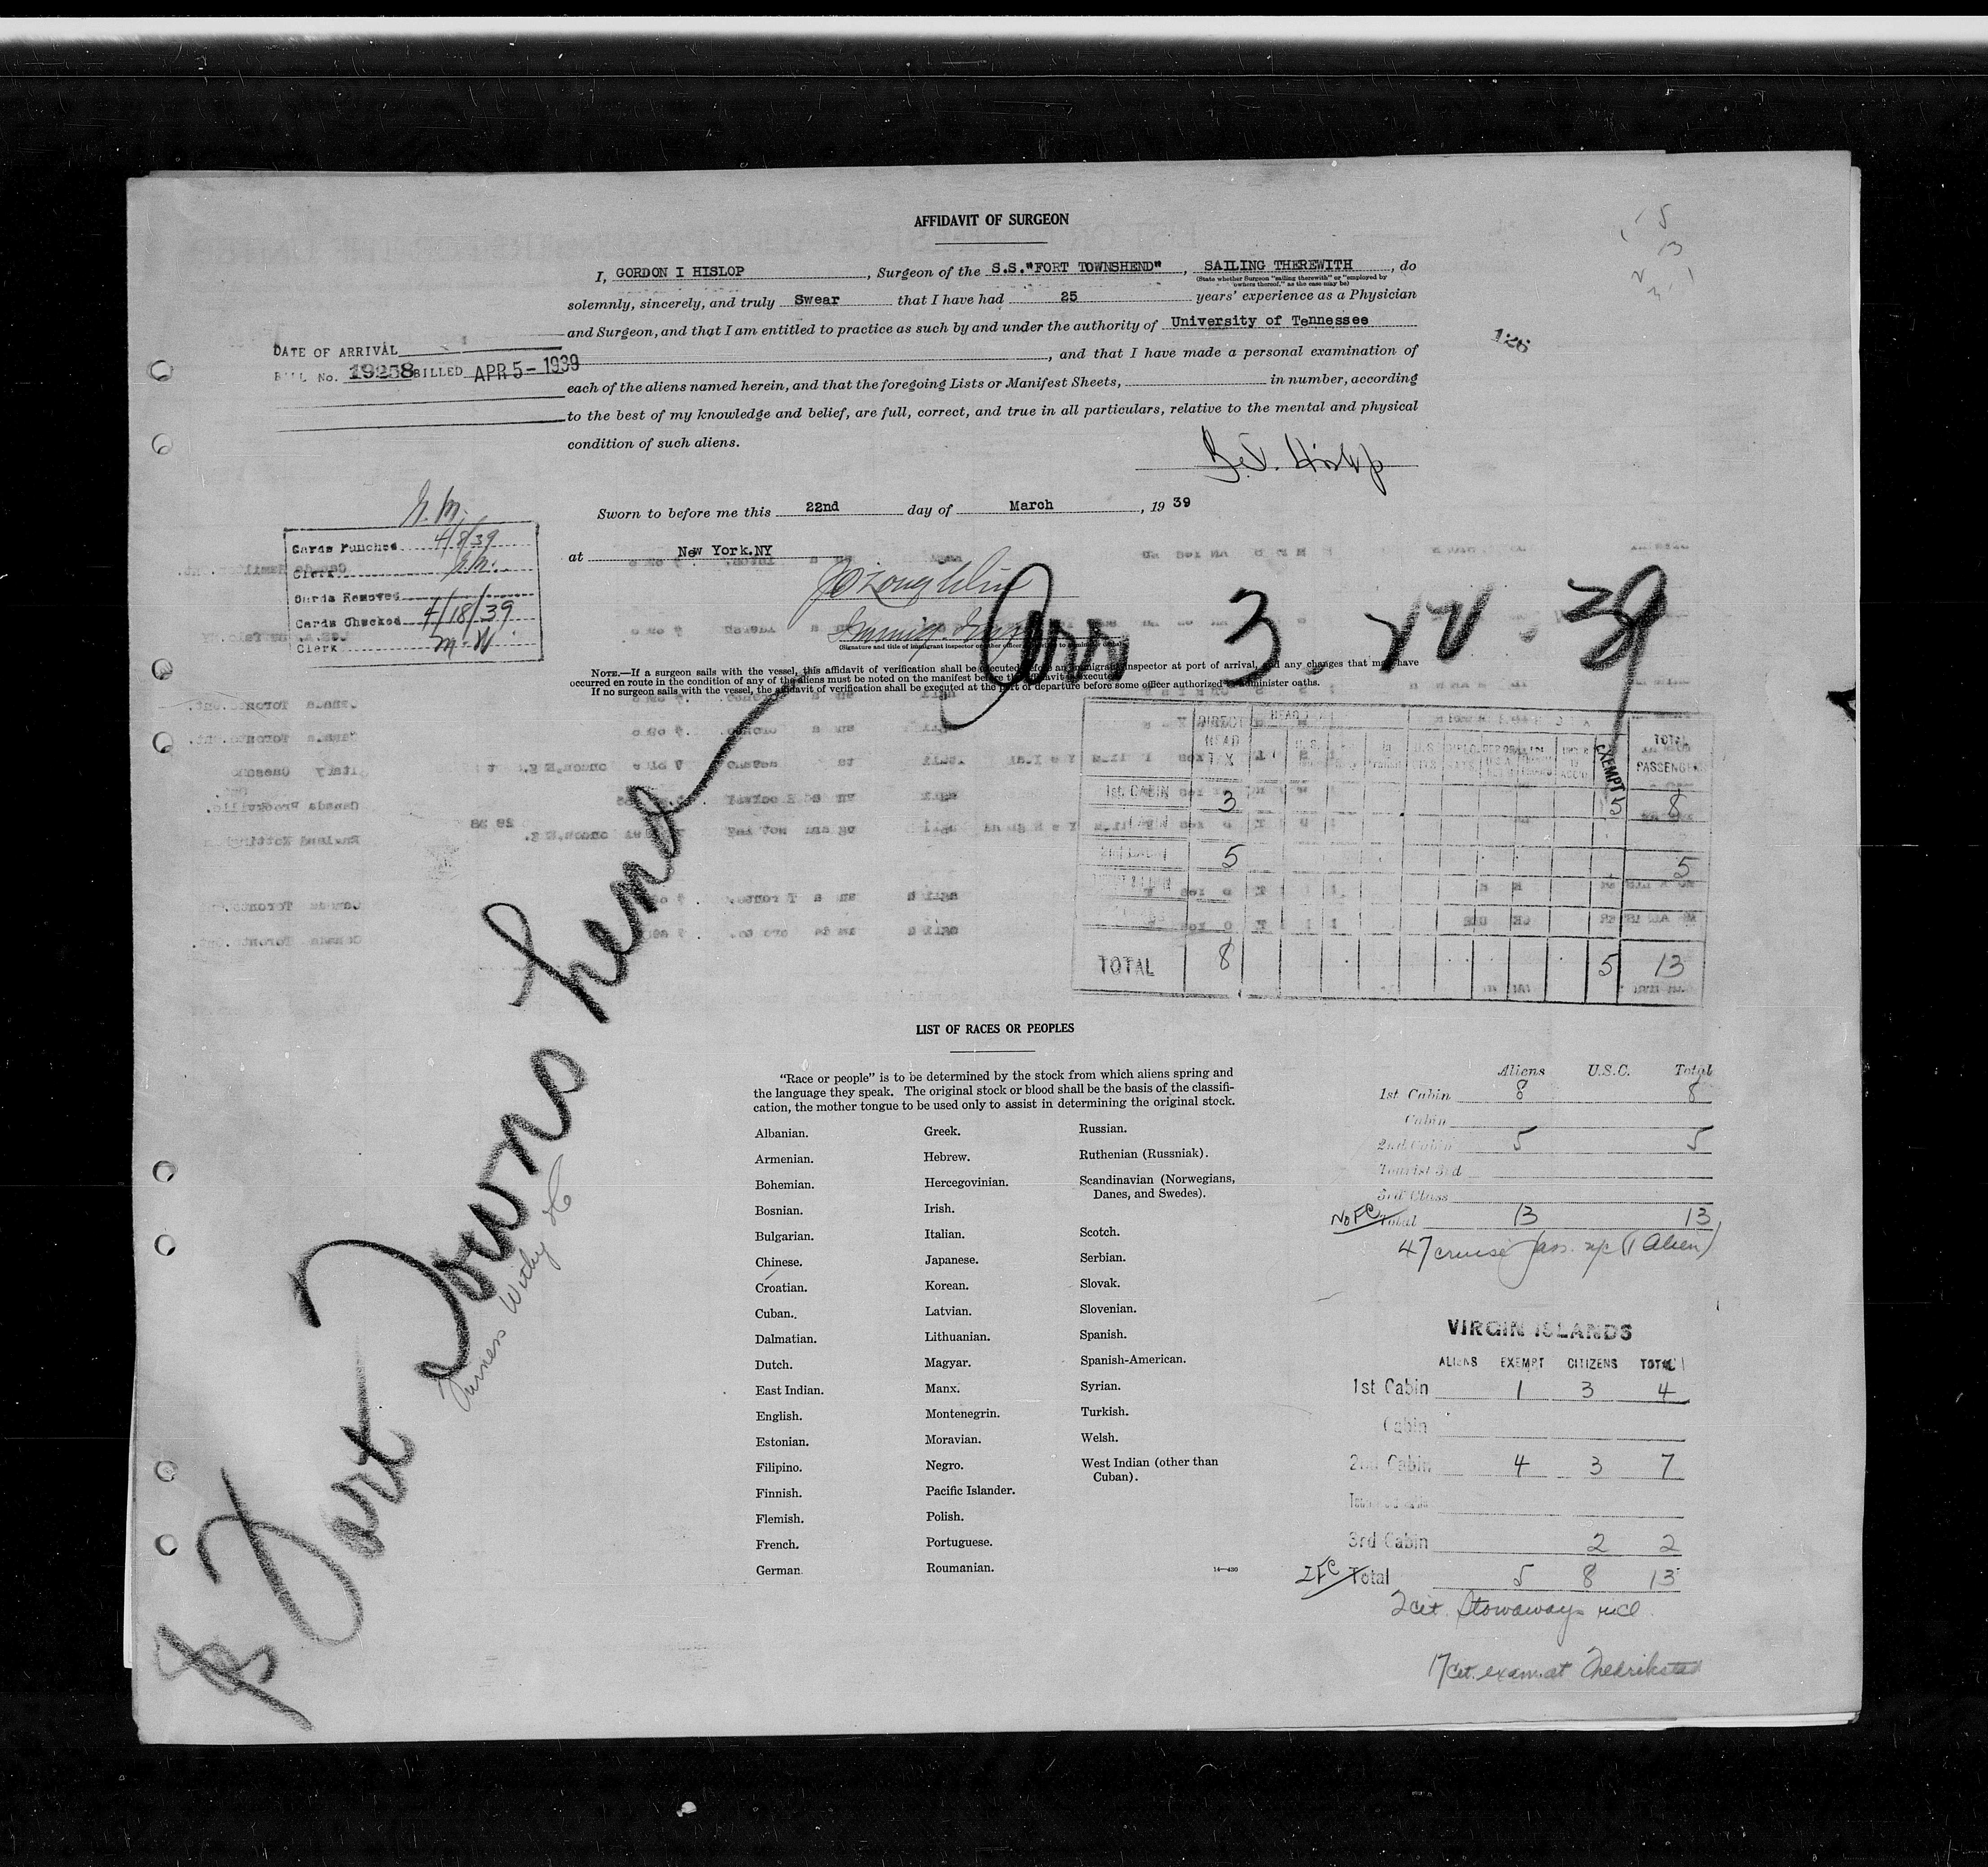 AFFIDAVIT OF SURGEON
I, GORDON I HISLOP, Surgeon of the S.S."FORT TOWNSHEND", SAILING THEREWITH, do
(State whether Surgeon "sailing therewith" or "employed by owners thereof," as the case may be)
solemnly, sincerely, and truly Swear that I have had 25 years' experience as a Physician
and Surgeon, and that I am entitled to practice as such by and under the authority of University of Tennessee
, and that I have made a personal examination of
each of the aliens named herein, and that the foregoing Lists or Manifest Sheets, in number, according
to the best of my knowledge and belief, are full, correct, and true in all particulars, relative to the mental and physical
condition of such aliens.
Hislop
126
DATE OF ARRIVAL
BILL No. 19258 BILLED APR 5 - 1939
Sworn to before me this 22nd day of March, 1939
at New York.NY
Cards Punched 4/8/39
Clerk
Cards Removed
Cards Checked 4/18/39
Clerk M.W.
Arr 3.22.39
NOTE.—If a surgeon sails with the vessel, this affidavit of verification shall be executed before an immigrant inspector at port of arrival, and any changes that may have
occurred en route in the condition of any of the aliens must be noted on the manifest before the affidavit is executed.
If no surgeon sails with the vessel, the affidavit of verification shall be executed at the port of departure before some officer authorized to administer oaths.
DIRECT HEAD TAX EXEMPT TOTAL PASSENGERS
1st CABIN 3 5 8
5 5
TOTAL 8 5 13
SS Fort Townshend
Furness Withy Co
LIST OF RACES OR PEOPLES
"Race or people" is to be determined by the stock from which aliens spring and
the language they speak. The original stock or blood shall be the basis of the classifi-
cation, the mother tongue to be used only to assist in determining the original stock.
Albanian.
Armenian.
Bohemian.
Bosnian.
Bulgarian.
Chinese.
Croatian.
Cuban.
Dalmatian.
Dutch.
East Indian.
English.
Estonian.
Filipino.
Finnish.
Flemish.
French.
German
Greek.
Hebrew.
Hercegovinian.
Irish.
Italian.
Japanese.
Korean.
Latvian.
Lithuanian.
Magyar.
Manx.
Montenegrin.
Moravian.
Negro.
Pacific Islander.
Polish.
Portuguese.
Roumanian.
Russian.
Ruthenian (Russniak).
Scandinavian (Norwegians,
Danes, and Swedes).
Scotch.
Serbian.
Slovak.
Slovenian.
Spanish.
Spanish-American.
Syrian.
Turkish.
Welsh.
West Indian (other than
Cuban).
14—430
Aliens U.S.C. Total
1st Cabin 8 8
Cabin
2nd Cabin 5 5
Tourist 3rd
3rd Class
No FC Total 13 13
47 cruise pass. n/c (1 Alien)
VIRGIN ISLANDS
ALIENS EXEMPT CITIZENS TOTAL
1st Cabin 1 3 4
Cabin
2nd Cabin 4 3 7
3rd Cabin 2 2
2 FC Total 5 8 13
2 cit. Stowaways incl.
17 cit. exam. at Fredriksted